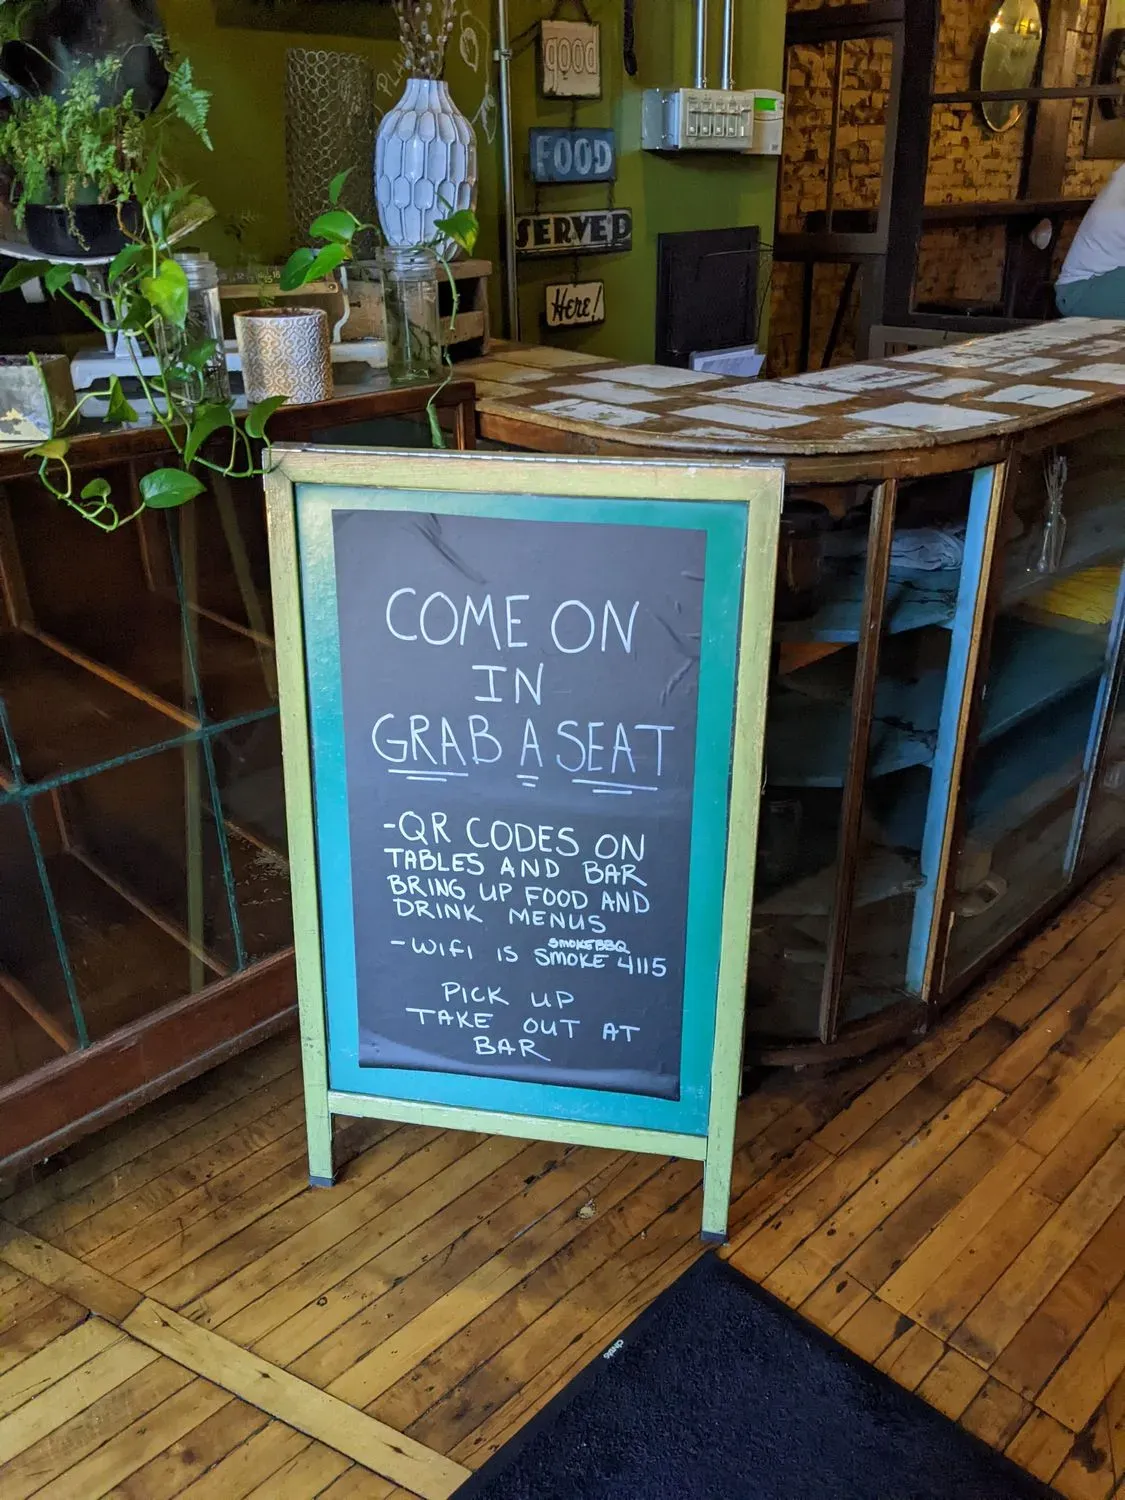 good
FOOD
SERVED
Here!
COME ON
IN
GRAB A SEAT
-QR CODES ON
TABLES AND BAR
BRING UP FOOD AND
DRINK MENUS
SMOKEBBQ
-WIFI IS SMOKE 4115
PICK UP
TAKE OUT AT
BAR